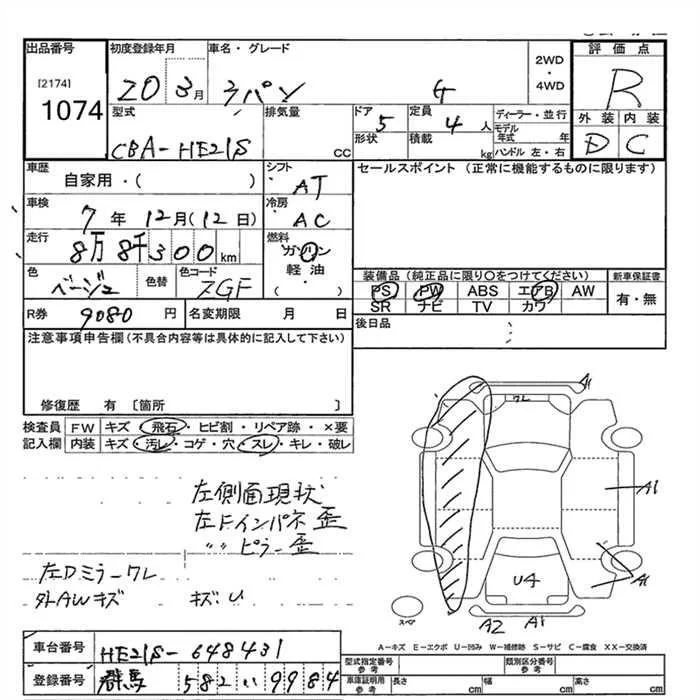 出品番号 初度登録年月 車名・グレード 2WD ・ 4WD 評価点
[2174] 1074 20 3月 ラパン G R
型式 排気量 ドア 5 定員 4 人 ディーラー・並行 外装 内装
形状 積載 kg モデル年式 年 D C
CBA-HE21S CC ハンドル 左・右
車歴 自家用・( ) シフト AT セールスポイント(正常に機能するものに限ります)
車検 7年 12月(12日) 冷房 AC
走行 8万8千300km 燃料 ガソリン 軽油 ・( )
色 ベージュ 色替 色コード ZGF 装備品(純正品に限り○をつけてください) 新車保証書
PS PW ABS エアB AW 有・無
R券 9080 円 名変期限 月 日 SR ナビ TV カワ
注意事項申告欄(不具合内容等は具体的に記入して下さい) 後日品
修復歴 有 [箇所 ]
検査員 FW キズ・飛石・ヒビ割・リペア跡・×要
記入欄 内装 キズ・汚レ・コゲ・穴・スレ・キレ・破レ
A1
ワレ
左側面現状
左Fインパネ歪
〃 ピラー歪
A1
左Dミラーワレ
外AWキズ キズ:U
U4
A1
スペア
A2 A1
A-キズ E-エクボ U-凹み W-補修跡 S-サビ C-腐食 XX-交換済
車台番号 HE21S-648431
登録番号 群馬 582 い 9984
型式指定番号 参考 類別区分番号 参考
車庫証明用 参考 長さ cm 幅 cm 高さ cm